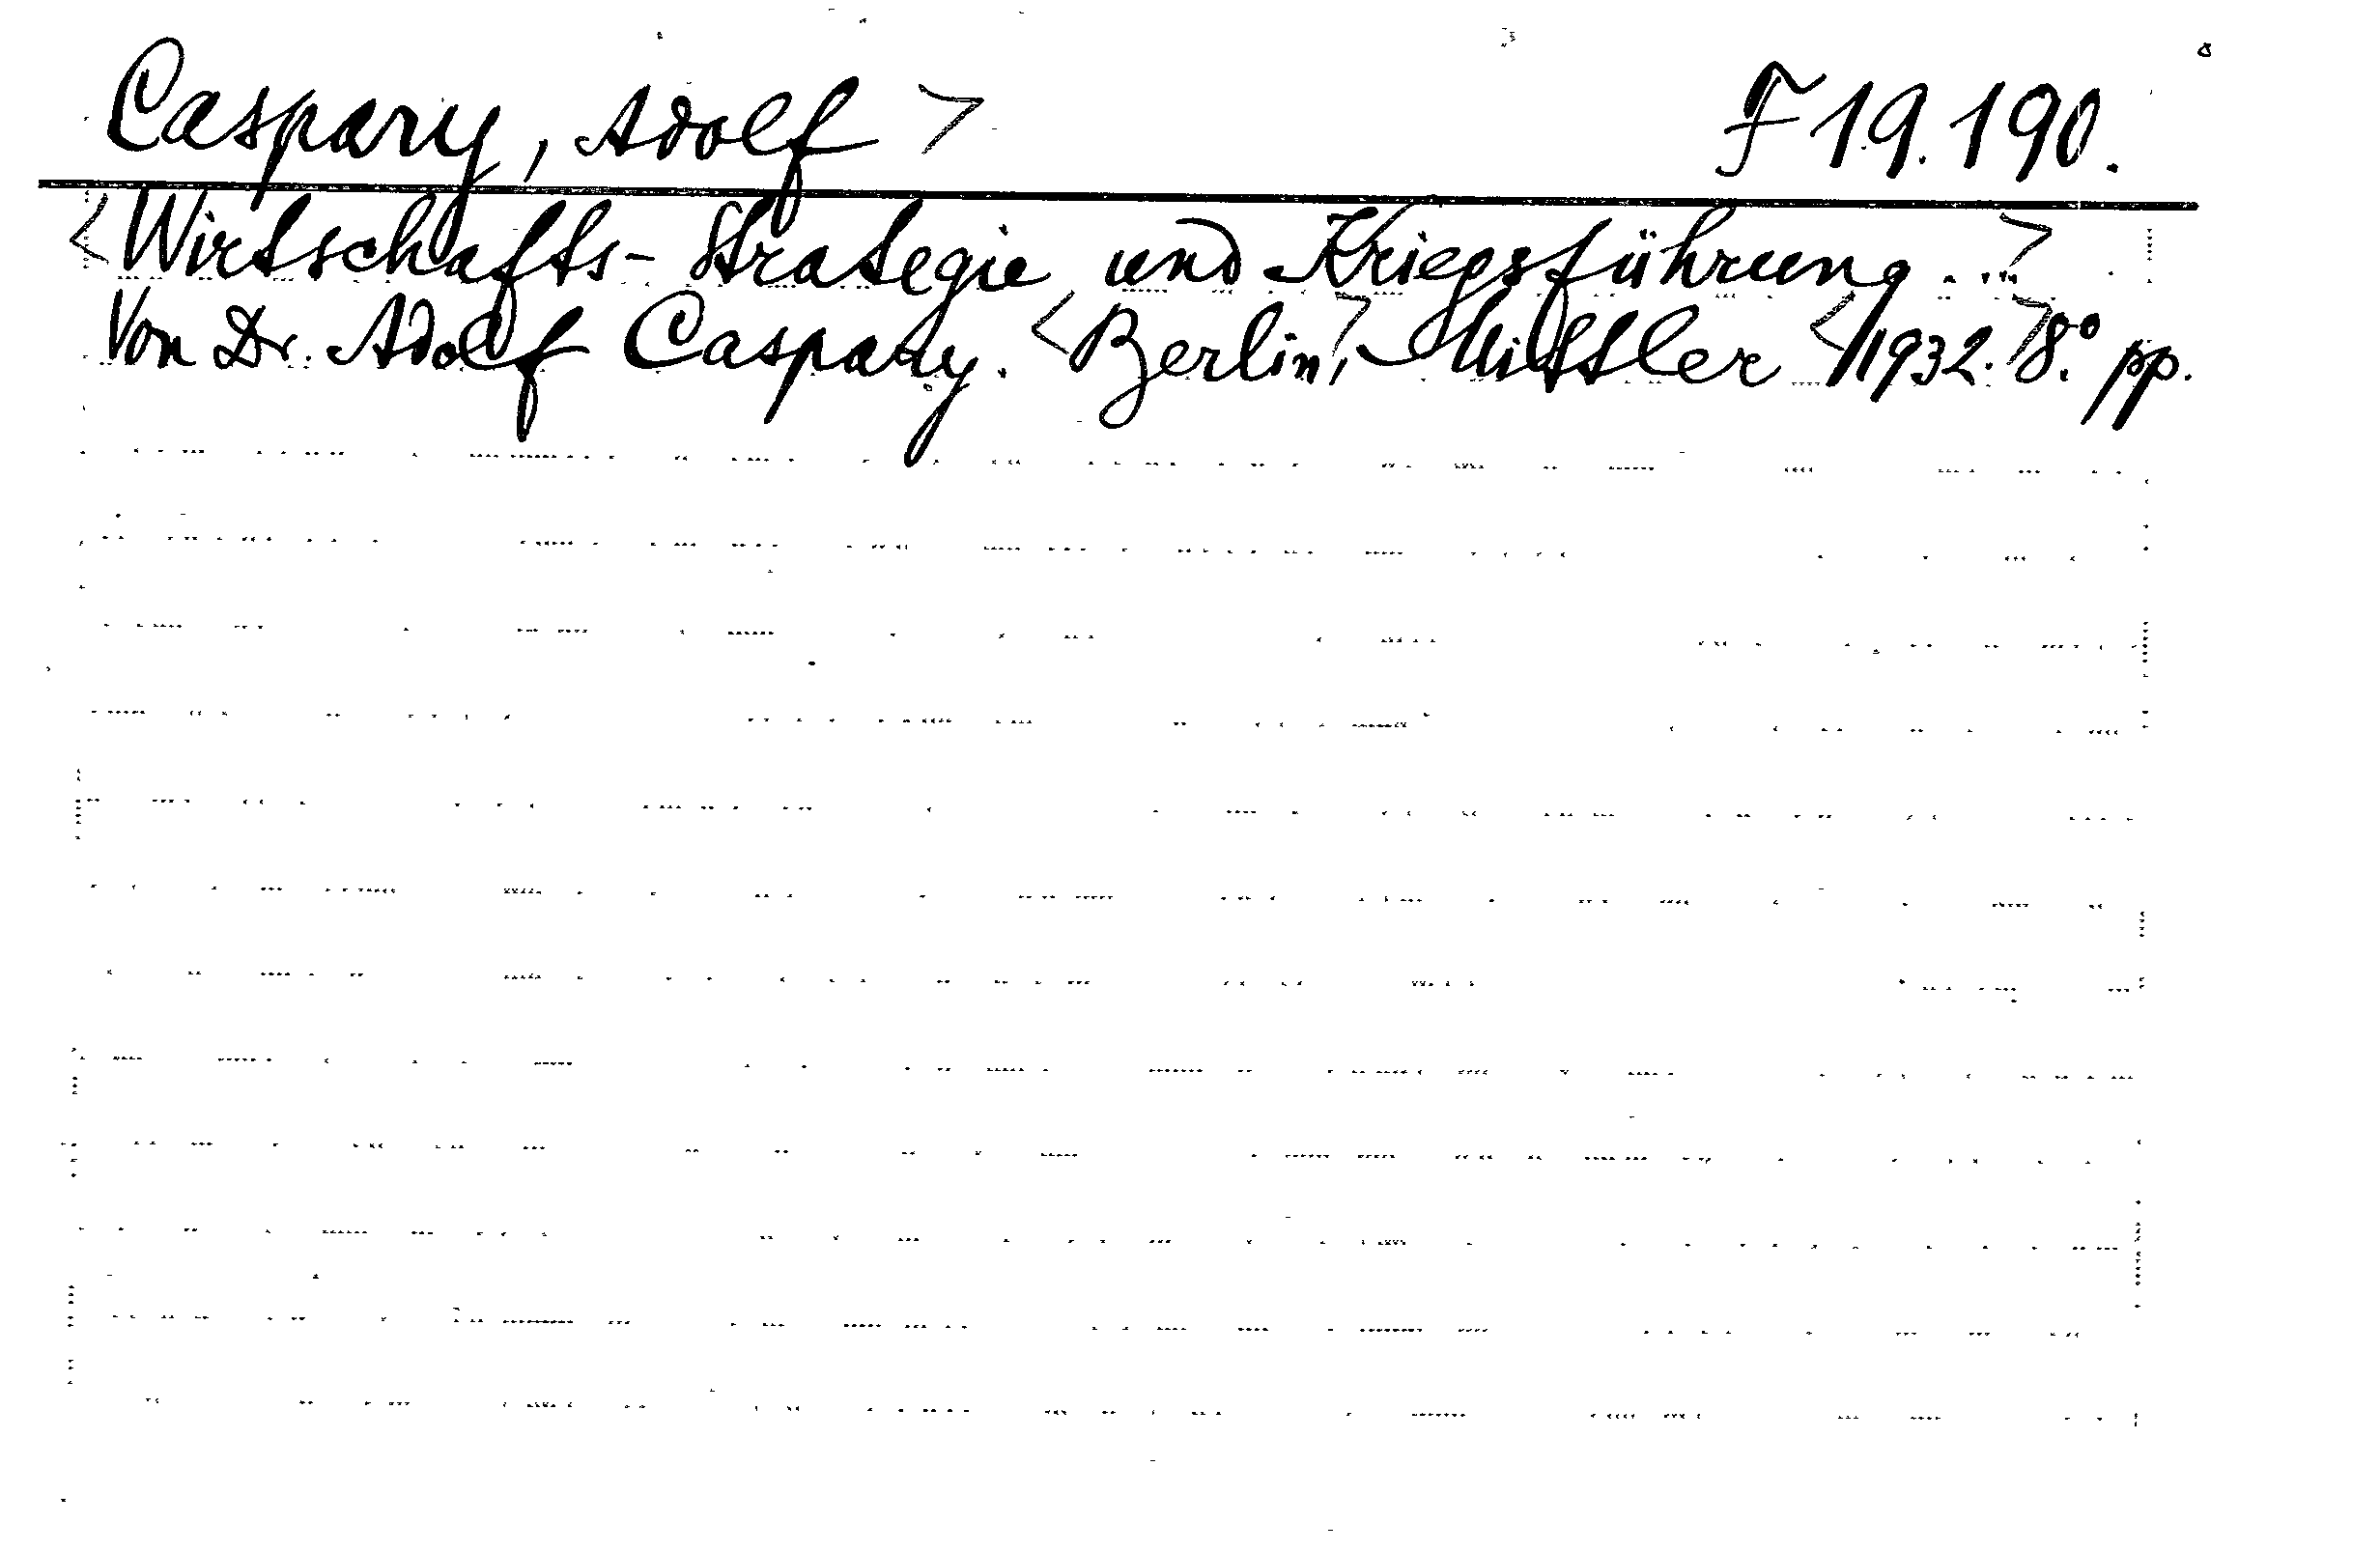 Caspary, Adolf > F 19.190.
<Wirtschafts-Strategie und Kriegsführung...>
Von Dr. Adolf Caspary. <Berlin,> Mittler <1932.> 8.° pp.